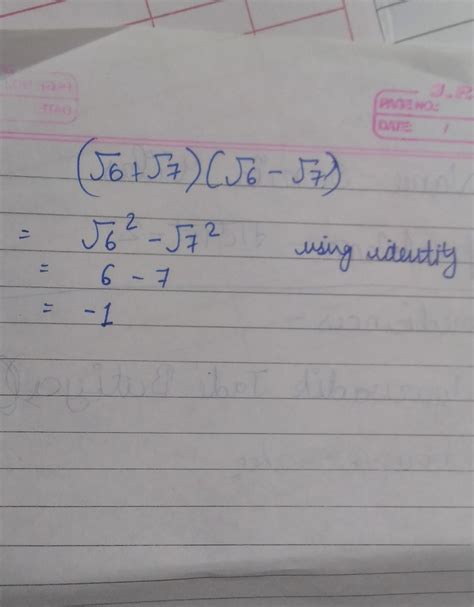 PAGE NO.:
DATE: /
(√6+√7)(√6-√7)
= √6² - √7² using identity
= 6 - 7
= -1